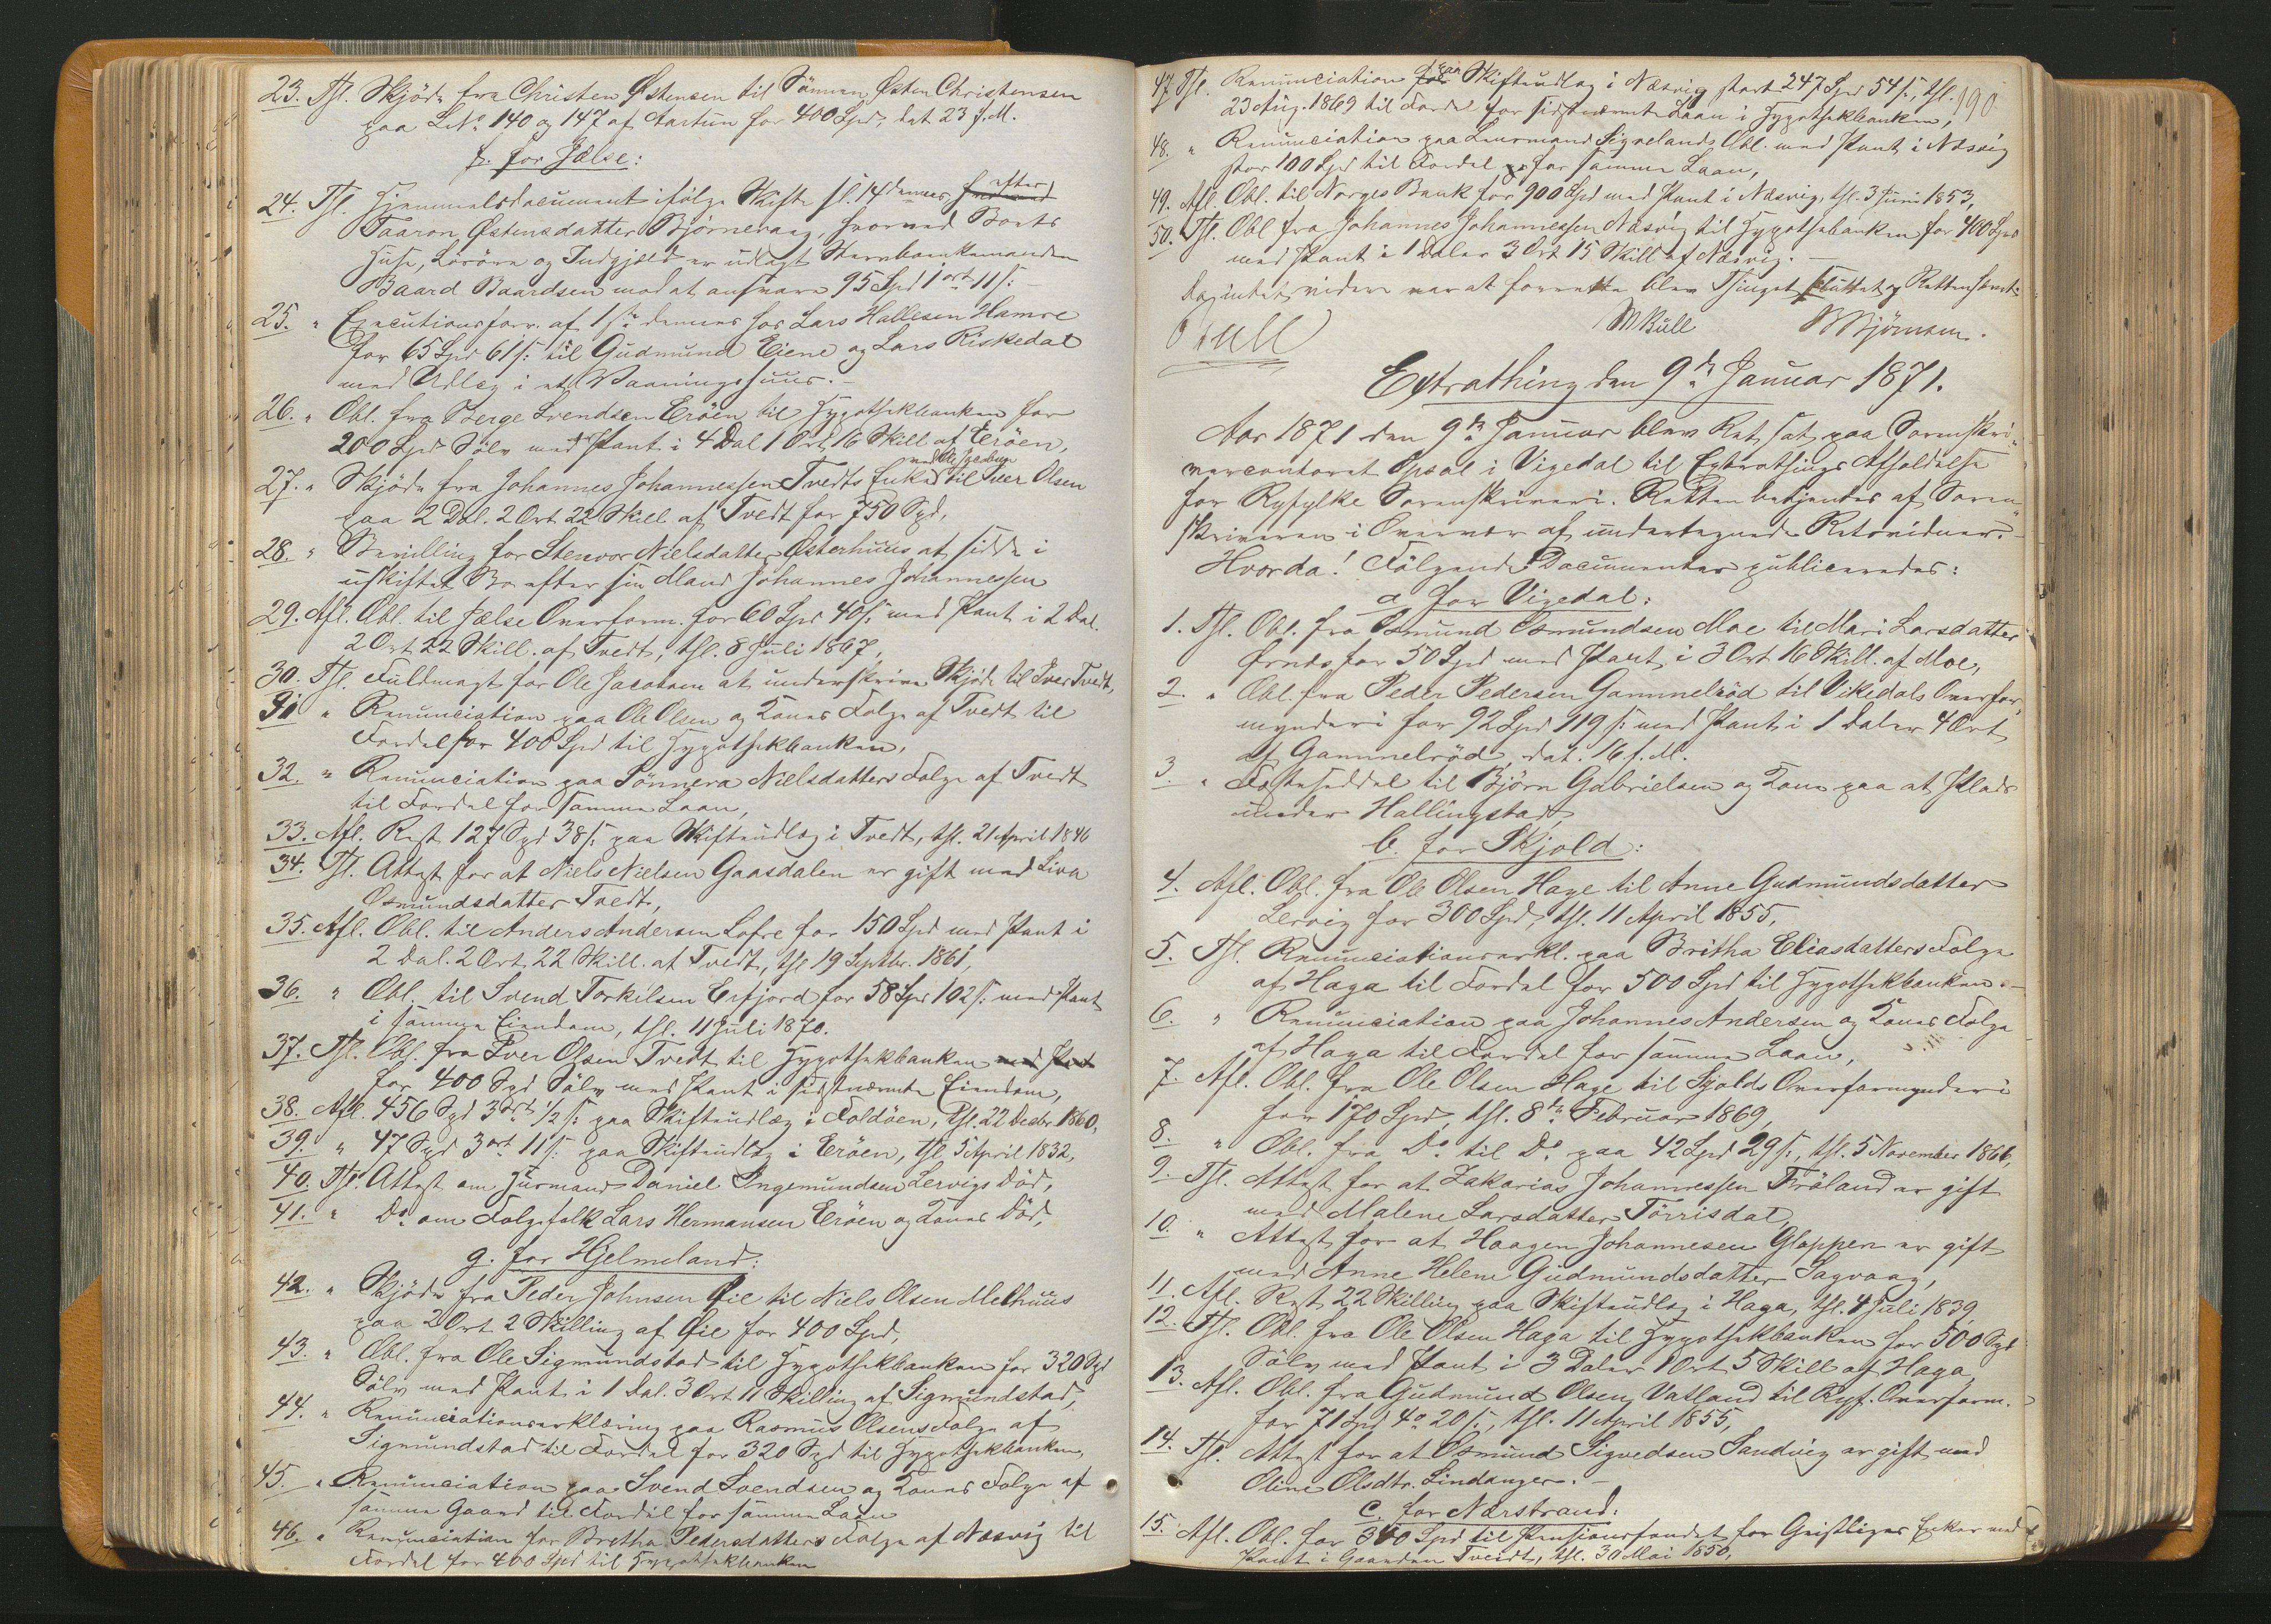 23. Thl. Skjöde fra Christen Østensen til Sönnen Østen Christensen
paa L.No. 140 og 147 af Aartun for 400 Spd, dat 23 f. M.
f. for Jelse:
24. Thl. Hjemmelsdocument ifölge Skifte sl. 14 dennes efter
Taaron Østensdatter Björnevaag, hvorved Boets
Huse, Lösöre og Indgjæld er udlagt Stervboenkemanden
Baard Baardsen mod at ansvare 95 Spd 1 ort 11 s:
25. " Executionsforr. af 1ste dennes hos Lars Hallesen Hamre
for 65 Spd 61 s: til Gudmund Eiene og Lars Riskedal
med Udlæg i et Vaaningshuus.-
26. " Obl. fra Børge Svendsen Eröen til Hypothekbanken for
200 Spd Sölv med Pant i 4 Dal 1 Ort 16 Skill af Eröen,
27. " Skjöde fra Johannes Johannessen Tvedts Enke ved Ole Jacobsen til Iver Olsen
paa 2 Dal. 2 Ort 22 Skill af Tvedt for 750 Spd,
28. " Bevilling for Stenvor Nielsdatter Østerhuus at sidde i
uskiftet Bo efter sin Mand Johannes Johannessen
29. Afl. Obl. til Jelse Overform. for 60 Spd 40 s: med Pant i 2 Dal.
2 Ort 22 Skill. af Tvedt, thl. 8 Juli 1867,
30. Thl. Fuldmagt for Ole Jacobsen at underskrive Skjöde til Iver Tvedt,
31 " Renunciation paa Ole Olsen og Kones Folge af Tvedt til
Fordel for 400 Spd til Hypothekbanken,
32. " Renunciation paa Sönnera Nielsdatters Folge af Tvedt
til Fordel for samme Laan,
33. Afl. Rest 127 Spd 38 s: paa Skifteudlæg i Tvedt, thl. 21 April 1846
34. Thl. Attest for at Niels Nielsen Gaasdalen er gift med Siva
Osmundsdatter Tvedt,
35. Afl. Obl. til Anders Andersen Lofre for 150 Spd med Pant i
2 Dal. 2 Ort 22 Skill. af Tvedt, thl 19 Septbr. 1861,
36. " Obl. til Svend Torkilsen Erfjord for 58 Spd 102 s: med Pant
i samme Eiendom, thl. 11 Juli 1870.
37. Thl. Obl. fra Iver Olsen Tvedt til Hypothekbanken med Pant
for 400 Spd Sölv med Pant i sidstnævnte Eiendom,
38. Afl. 456 Spd 3 ort 1/2 s: paa Skifteudlæg i Foldöen, Thl. 22 Decbr 1860,
39. " 47 Spd 3 ort 11 s: paa Skifteudlæg i Eröen, thl. 5 April 1832,
40. Thl. Attest om Huusmand Daniel Ingemundsen Lervigs Död,
41. " Do. om Folgefolk Lars Hermansen Eröen og Kones Död,
g. for Hjelmeland:
42. " Skjöde fra Peder Johnsen Øie til Niels Olsen Melhuus
paa 2 Ort 2 Skilling af Øie for 400 Spd,
43. " Obl. fra Ole Sigmundstad til Hypothekbanken for 320 Spd
Sölv med Pant i 1 Dal. 3 Ort 11 Skilling af Sigmundstad,
44. " Renunciationserklæring paa Rasmus Olsens Folge af
Sigmundstad til Fordel for 320 Spd til Hypothekbanken,
45. " Renunciation paa Svend Svendsen og Kones Folge af
samme Gaard til Fordel for samme Laan
46. " Renunciation for Bretha Pedersdatters Folge af Næsvig til
Fordel for 400 Spd til Hypothekbanken
190
47 Thl. Renunciation paa Skifteudlæg i Næsvig stort 247 Spd 54 s:, thl.
23 Aug. 1869 til Fordel for sidstnævnte Laan i Hypothekbanken,
48. " Renunciation paa Lensmand Sigvelands Obl. med Pant i Næsvig
stor 100 Spd til Fordel for samme Laan,
49. Afl. Obl. til Norges Bank for 900 Spd med Pant i Næsvig, thl. 3 Juni 1853,
50. Thl. Obl fra Johannes Johannessen Næsvig til Hypothekbanken for 400 Spd
med Pant i 1 Daler 3 Ort 15 Skill af Næsvig.-
Da intet videre var at forrette blev Thinget sluttet og Retten hævet.
Bull MBull Björnsen.
Extrathing den 9de Januar 1871.
Aar 1871 den 9de Januar blev Ret sat paa Sorenskri-
vercontoret Opsal i Vigedal til Extrathings Afholdelse
for Ryfylke Sorenskriveri. Retten betjentes af Soren-
skriveren i Overvær af undertegnede Retsvidner.-
Hvorda! Fölgende Documenter publiceredes:
a for Vigedal:
1. Thl. Obl. fra Osmund Osmundsen Moe til Mari Larsdatter
Ørnds for 50 Spd med Pant i 3 Ort 16 Skill. af Moe,
2. " Obl. fra Peder Pedersen Gammelröd til Vikedals Overfor-
mynderi for 92 Spd 119 s: med Pant i 1 Daler 4 Ort
af Gammelröd, dat. 16 f. M.
3 " Festeseddel til Björn Gabrielsen og Kone paa et Plads
under Hallingstad,
b. for Skjold:
4. Afl. Obl. fra Ole Olsen Hage til Anne Gudmundsdatter
Lervig for 300 Spd, thl. 11 April 1855,
5. Thl. Renunciationserkl. paa Britha Eliasdatters Folge
af Haga til Fordel for 500 Spd til Hypothekbanken.-
6. " Renunciation paa Johannes Andersen og Kones Folge
af Haga til Fordel for samme Laan,
7. Afl. Obl. fra Ole Olsen Hage til Sjolds Overformynderi
for 170 Spd, thl. 8de Februar 1869,
8. " Obl. fra Do. til Do. paa 42 Spd 29 s:, thl. 5 November 1866,
9. Thl. Attest for at Zakarias Johannessen Fröland er gift
med Malene Larsdatter Törrisdal,
10. " Attest for at Haagen Johannesen Gloppen er gift
med Anne Helene Gudmundsdatter Sagvaag,
11. Afl. Rest 22 Skilling paa Skifteudlæg i Haga, thl. 4 Juli 1839,
12. Thl. Obl. fra Ole Olsen Haga til Hypothekbanken for 500 Spd
Sölv med Pant i 3 Daler 1 Ort 5 Skill af Haga,
13. Afl. Obl. fra Gudmund Olsen Vatland til Ryf. Overform.
for 71 Spd 4o 20 s:, thl. 11 April 1855,
14. Thl. Attest for at Osmund Sigvedsen Sandvig er gift med
Oline Olsdtr. Lindanger.-
c. for Nærstrand:
15. Afl. Obl. for 300 Spd til Pensionsfondet for Geistliges Enker med
Pant i Gaarden Tveidt, thl. 30 Mai 1850,